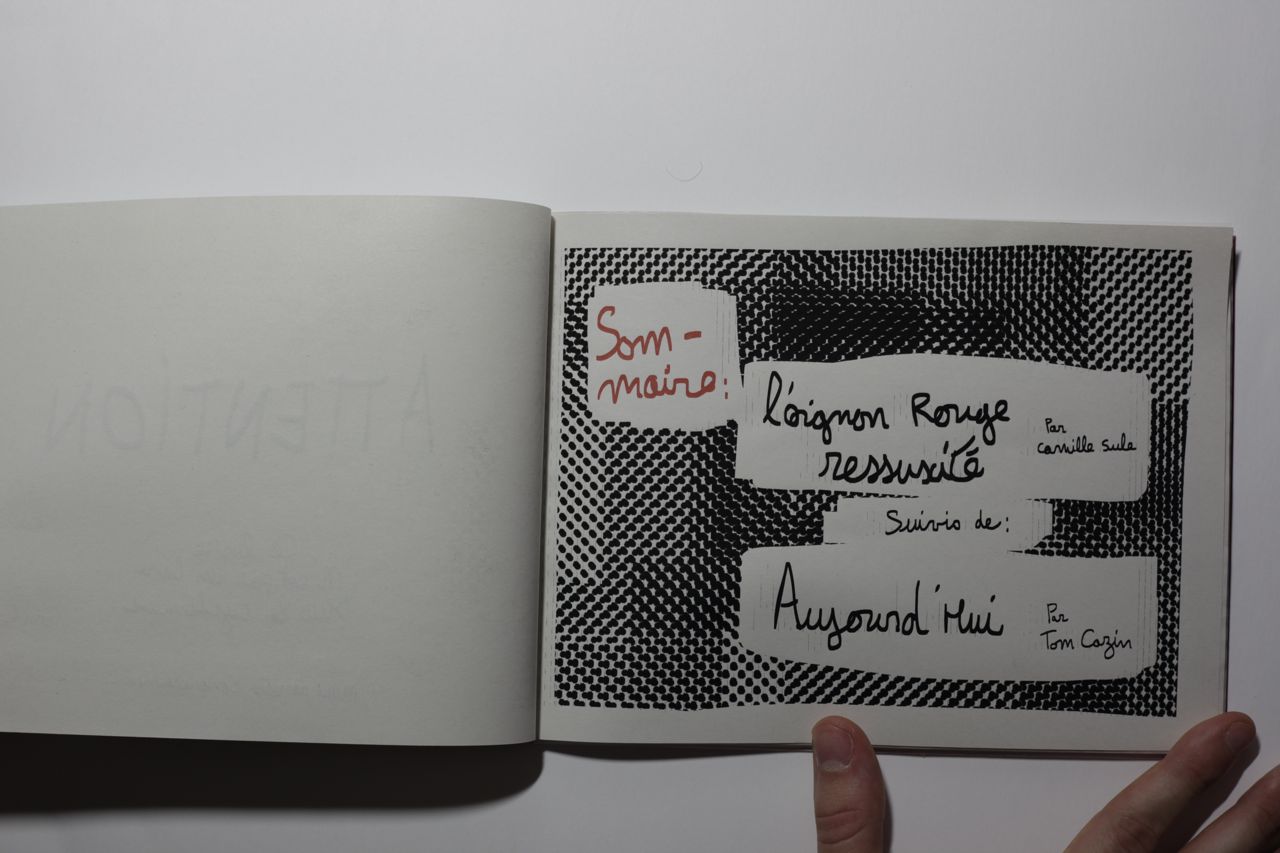 ATTENTION
Som-
maire:
l'oignon Rouge
ressuxité
Par
camille sule
Suivis de:
Aujourd'Hui
Par
Tom Cazin